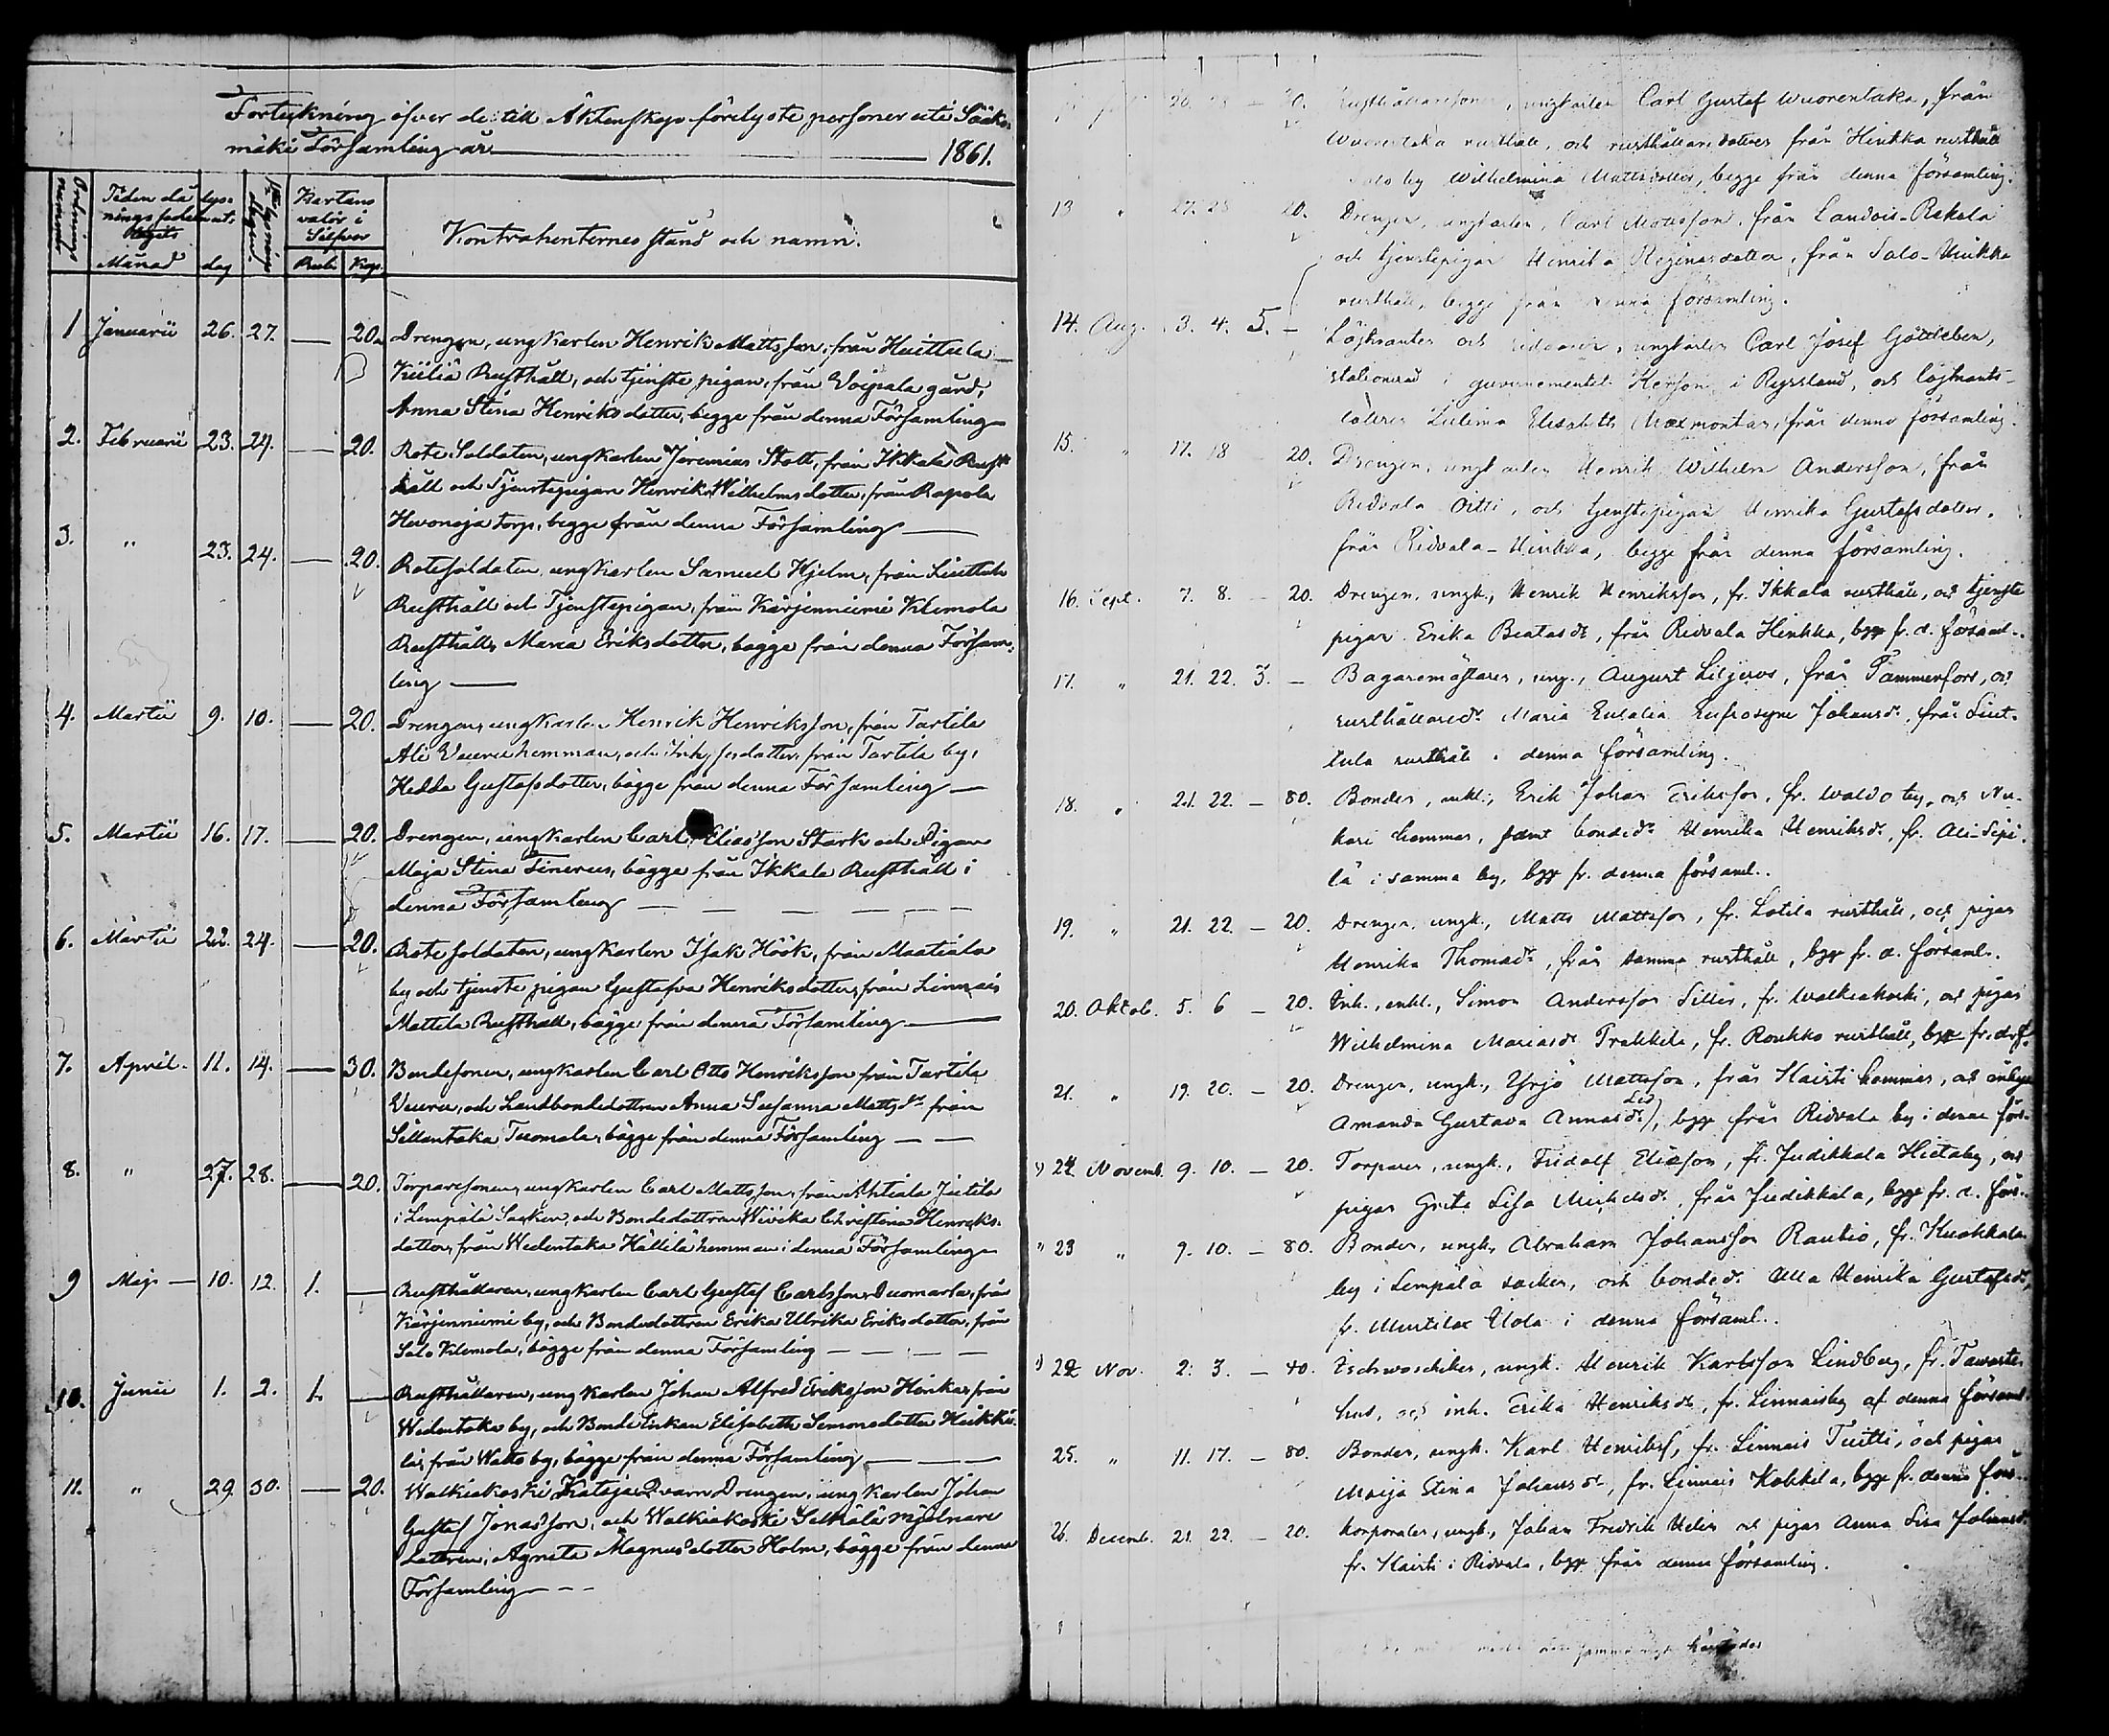 Förteckning öfver de till Äktenskap förelyste personer uti Sääks-
mäki Församling år 1861.
Ordnings nummer
Tiden då lys-
nings sedeln ut-
Månad dag
Kartans
valör i
Silfver
Rub. Kop.
Kontrahenternes stånd och namn.
1 Januarii 26. 27. — 20. Drengen, ungkarlen Henrik Mattsson, från Huittula
Kiiliä Rusthåll, och tjenste pigan, från Voipala gård,
Anna Stina Henriksdotter, begge från denna Församling
2. Februarii 23. 24. — 20. Rote Soldaten, ungkarlen Jeremias Stolt, från Ikkala Rust
håll och Tjenstepigan Henrika Wilhelmsdotter, från Rapola
Hevonoja torp, begge från denna Församling —
3. " 23. 24. — 20. Rotesoldaten, ungkarlen Samuel Hjelm, från Liuttula
Rusthåll och Tjenstepigan, från Kärjenniemi Klemola
Rusthåll, Maria Eriksdotter, bägge från denna Försam-
ling —
4. Martii 9. 10. — 20. Drengen, ungkarlen Henrik Henriksson, från Tarttila
Ali Vuori hemman, och Inh, sdotter, från Tarttila by,
Hedda Gustafsdotter, bägge från denna Församling —
5. Martii 16. 17. — 20. Drengen, ungkarlen Carl Eliasson Stark och Pigan
Maja Stina Finerus, bägge från Ikkala Rusthåll i
denna Församling — — — — —
6. Martii 22. 24. — 20. Rote soldaten, ungkarlen Isak Höök, från Maatiala
by och tjenste pigan Gustafva Henriksdotter, från Linnais
Mattila Rusthåll, bägge från denna Församling —
7. April. 11. 14. — 30. Bondesonen, ungkarlen Carl Otto Henriksson från Tarttila
Vuori, och Landbondedottren Anna Susanna Mattsdr. från
Sillantaka Tuomala, bägge från denna Församling — —
8. " 27. 28. — 20. Torparesonen, ungkarlen Carl Mattsson, från Ahtiala Jutila
i Lempälä Socken, och Bondedottren Wivika Christina Henriks-
dotter, från Wedentaka Hällilä hemman i denna Församling
9 Maji — 10. 12. 1. — Rusthållaren, ungkarlen Carl Gustaf Carlsson Duomarla, från
Kärjenniemi by, och Bondedottren Erika Ulrika Eriksdotter, från
Salo Klemola, bägge från denna Församling — — — —
10. Junii 1. 2. 1. — Rusthållaren, ungkarlen Johan Alfred Eriksson Hinkka, från
Wedentaka by, och Bonde Enkan Elisabeth Simonsdotter Heikki-
lä, från Watto by, bägge från denna Församling — — —
11. " 29. 30. — 20. Walkiakoski Kataja Qvarn Drengen, ungkarlen Johan
Gustaf Jonasson, och Walkiakoski mjölnare
dottren, Agneta Magnusdotter Holm, bägge från denna
Församling — — —
20. 28 — 20. Rusthållaresonen, ungkarlen Carl Gustaf Wuorentaka, från
Wuorentaka rusthåll, och rusthållaredotren från Hinkka rusthåll
Salo by Wilhelmina Mattsdotter, begge från denna församling.
13 " 27. 28 20. Drengen, ungkarlen, Carl Mattsson, från Landois-Rekola
och tjenstepigan Henrika Reginasdotter, från Salo-Hinkka
rusthåll, begge från denna församling.
14. Aug. 3. 4. 5. — Löjtnanten och riddaren, ungkarlen Carl Josef Göldleben,
stationerad i guvernementet Herson i Ryssland, och löjtnants-
dotren Lielina Elisabeth Maxmontan, från denna församling.
15. " 17. 18 20. Drengen, ungkarlen Henrik Wilhelm Andersson, från
Ridvala Oitti, och tjenstepigan Henrika Gustafsdotter,
från Ridvala-Hinkka, begge från denna församling.
16. Sept. 7. 8. — 20. Drengen, ungk., Henrik Henriksson, fr. Ikkala rusthåll, och tjenste
pigan Erika Beatasdr, från Ridvala Hinkka, bgge fr. d. församl..
17. " 21. 22. 3. — Bagaremästaren, ung., August Liljeros, från Tammerfors, och
rusthållaredr. Maria Eulalia Eufrosyne Johansdr., från Liut-
tula rusthåll i denna församling.
18. " 21. 22. — 80. Bonden, enkl., Erik Johan Eriksson, fr. Waldo by, och Nu-
kari hemman, samt bondedr. Henrika Henriksdr, fr. Ali-Sipi-
lä i samma by, bgge fr. denna församl..
19. " 21. 22. — 20. Drengen, ungk., Matts Mattsson, fr. Lotila rusthåll, och pigan
Henrika Thomasdr, från samma rusthåll, bgge fr. d. församl..
20. Oktob. 5. 6 — 20. Inh., enkl., Simon Andersson Siller, fr. Walkiakoski, och pigan
Wilhelmina Mariasdr Trakkila, fr. Roukko rusthåll, bgge fr. d. f.
21. " 19. 20. — 20. Drengen, ungk., Yrjö Mattsson, från Hairti hemman, och
Amanda Gustava Annasdr., bgge från Ridvala by i denna för.
22 Novemb. 9. 10. — 20. Torparen, ungk., Fridolf Eliasson, fr. Judikkala Hietaby, och
pigan Greta Lisa Michelsdr, från Judikkala, bgge fr. d. förs..
" 23 " 9. 10. — 80. Bonden, ungk, Abraham Johansson Rautio, fr. Kuokkala
by i Lempälä socken, och bondedr. Ulla Henrika Gustafsdr,
fr. Muttilax Uola i denna församl..
24 Nov. 2. 3. — 40. ungk. Henrik Karlsson Lindberg, fr. Tavaste-
hus, och inh. Erika Henriksdr, fr. Linnaisby af denna församl
25. " 11. 17. — 80. Bonden, ungk. Karl Henrikss, fr. Linnais Tuitti, och pigan
Maija Stina Johansdr, fr. Linnais Kokkila, bgge fr. denna förs..
26. Decemb. 21. 22. — 20. Korporalen, ungk., Johan Fredrik Helin och pigan Anna Lisa Johansdr
fr. Hairti i Ridvala, bgge från denna församling.